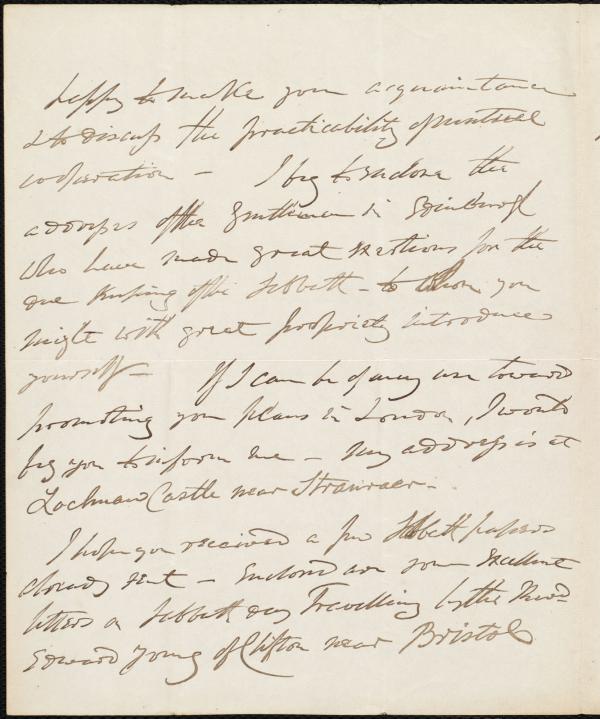 happy to make your acquaintance
& to discuss the practicability of mutual
cooperation – I beg to enclose the
address of the Gentlemen in Edinburgh
who have made great exertions for the
due keeping of the Sabbath – to whom you
might with great propriety introduce
yourself – If I can be of any use toward
promoting your plans in London, I would
beg you to inform me – my address is at
Lochnaw Castle near Stranraer –
I hope you received a few Sabbath papers
already sent – Enclosed are some excellent
letters on Sabbath day Travelling by the Revd
Edward Young of Clifton near Bristol